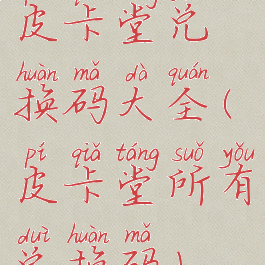 皮卡堂兑
huàn mǎ dà quán
换码大全(
pí qiǎ táng suǒ yǒu
皮卡堂所有
duì huàn mǎ
兑换码)